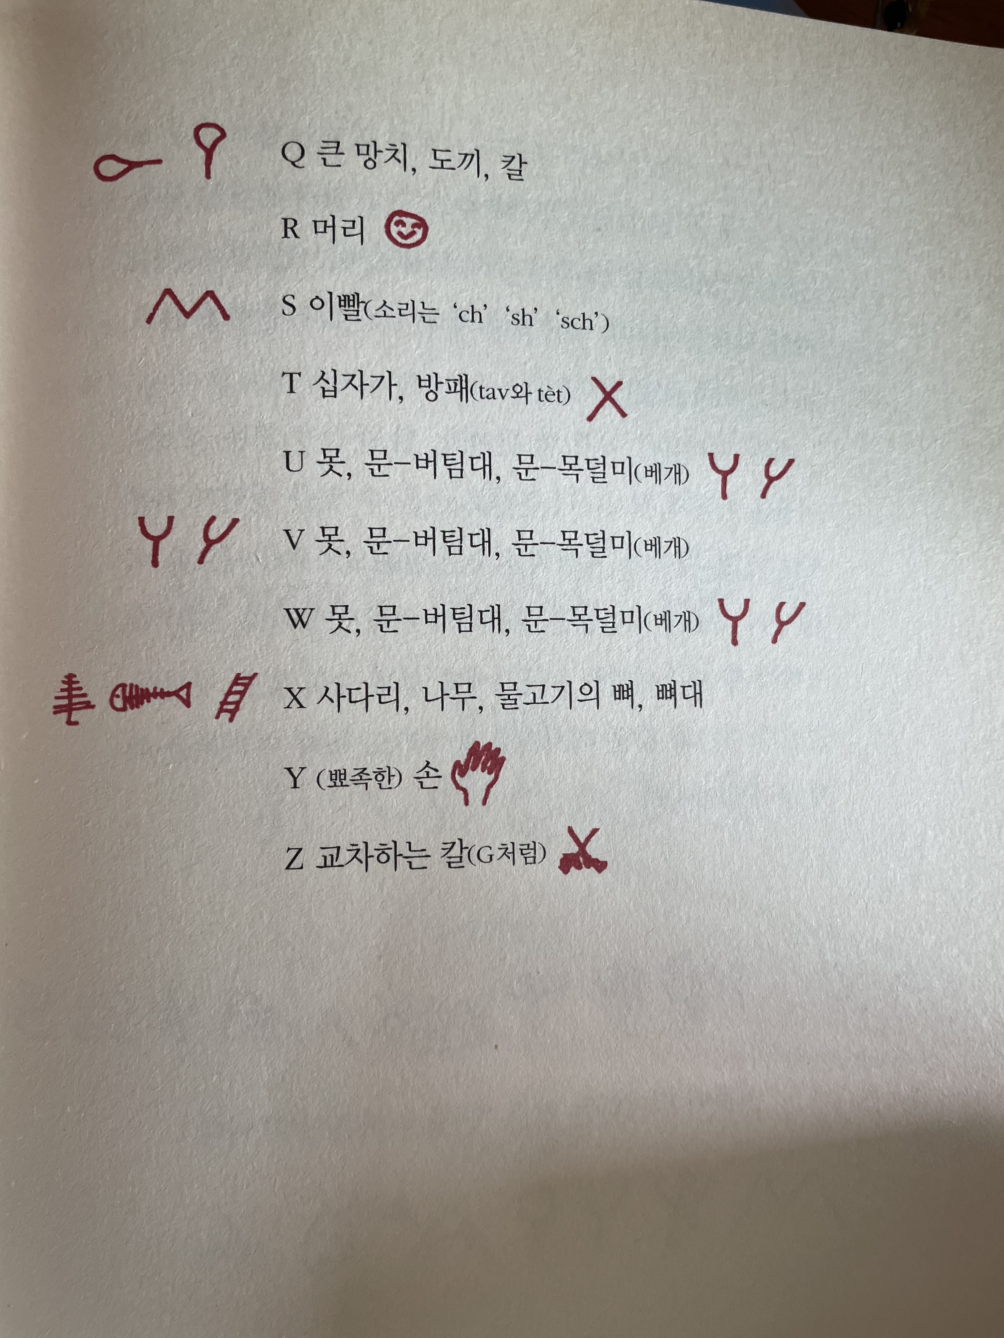 Q 큰 망치, 도끼, 칼
R 머리
S 이빨(소리는 ‘ch’ ‘sh’ ‘sch’)
T 십자가, 방패(tav와 tèt)
U 못, 문–버팀대, 문–목덜미(베개)
V 못, 문–버팀대, 문–목덜미(베개)
W 못, 문–버팀대, 문–목덜미(베개)
X 사다리, 나무, 물고기의 뼈, 뼈대
Y (뾰족한) 손
Z 교차하는 칼(G처럼)